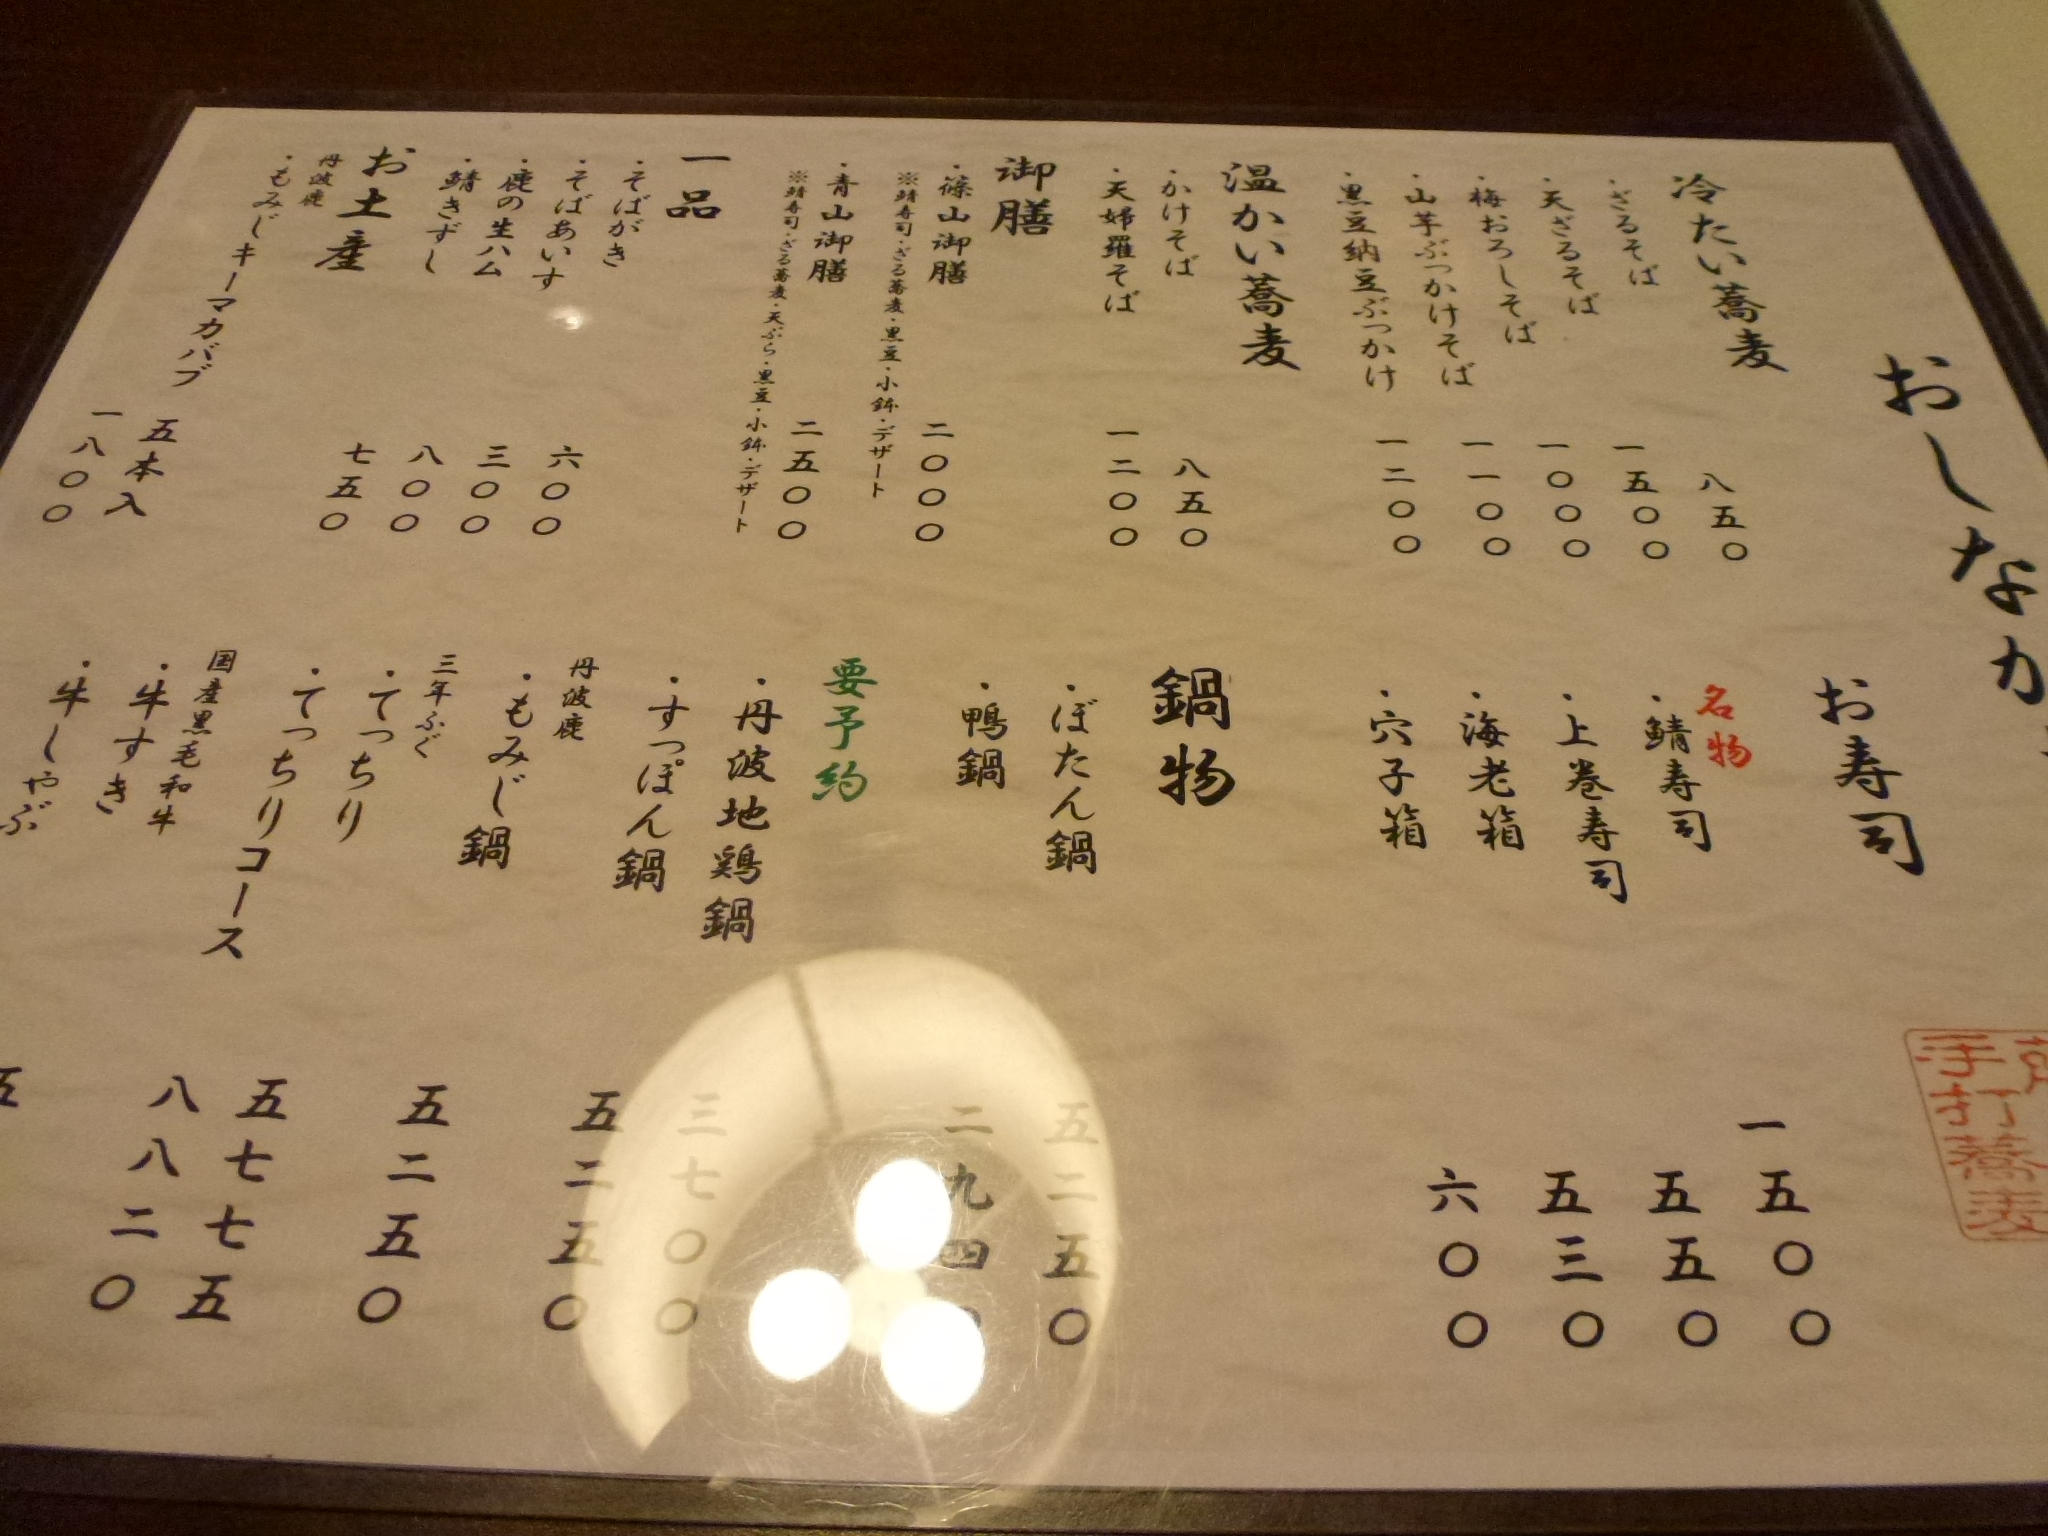 おしなが
冷たい蕎麦
・ざるそば 八五〇
・天ざるそば 一五〇〇
・梅おろしそば 一〇〇〇
・山芋ぶっかけそば 一一〇〇
・黒豆納豆ぶっかけ 一二〇〇
温かい蕎麦
・かけそば 八五〇
・天婦羅そば 一二〇〇
御膳
・篠山御膳 二〇〇〇
※鯖寿司・ざる蕎麦・黒豆・小鉢・デザート
・青山御膳 二五〇〇
※鯖寿司・ざる蕎麦・天ぷら・黒豆・小鉢・デザート
一品
・そばがき 六〇〇
・そばあいす 三〇〇
・鹿の生ハム 八〇〇
・鯖きずし 七五〇
お土産
丹波鹿
・もみじキーマカバブ 五本入
一八〇〇
お寿司
名物
・鯖寿司 一五〇〇
・上巻寿司 五五〇
・海老箱 五三〇
・穴子箱 六〇〇
鍋物
・ぼたん鍋 五二五〇
・鴨鍋 二九四〇
要予約
・丹波地鶏鍋 三七〇〇
・すっぽん鍋 五二五〇
丹波鹿
・もみじ鍋 五二五〇
三年ふぐ
・てっちり 五七七五
・てっちりコース 八八二〇
国産黒毛和牛
・牛すき 五
・牛しゃぶ
手打蕎麦